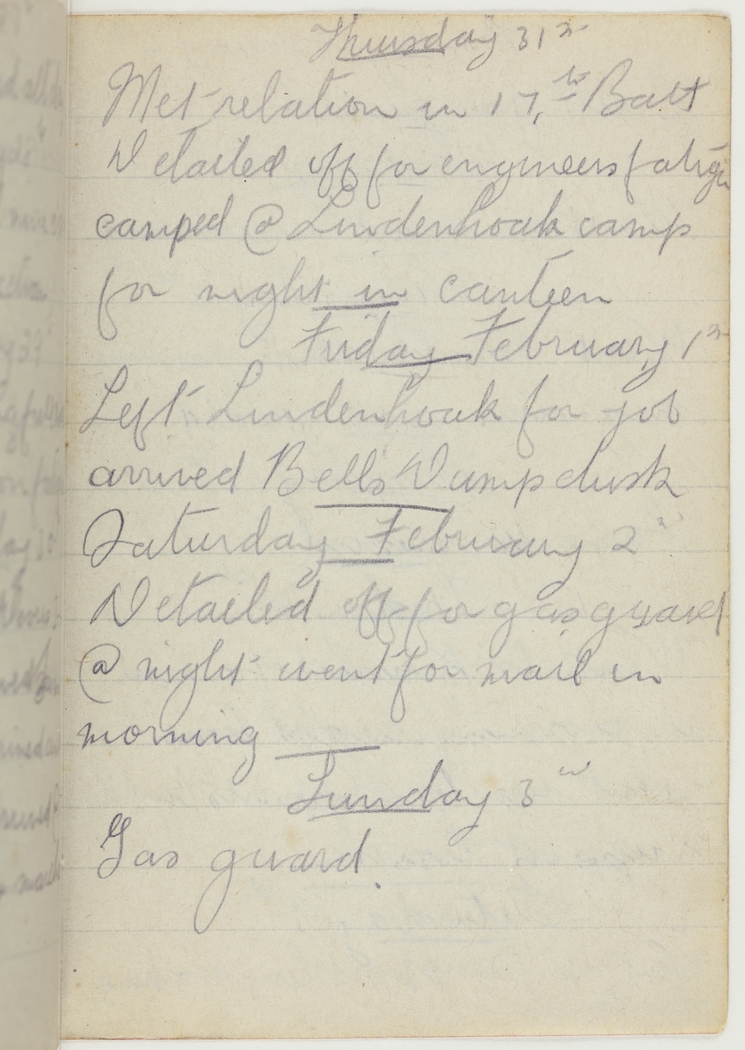 Thursday 31st
Met relation in 17th Batt
Detailed off for engineers fatigue
camped @ Lindenhoak camp
for night in canteen
Friday February 1st
Left Lindenhoak for job
arrived Bells Dump dusk
Saturday February 2nd
Detailed off for gas guard
@ night went for mail in
morning
Sunday 3rd
Gas guard.